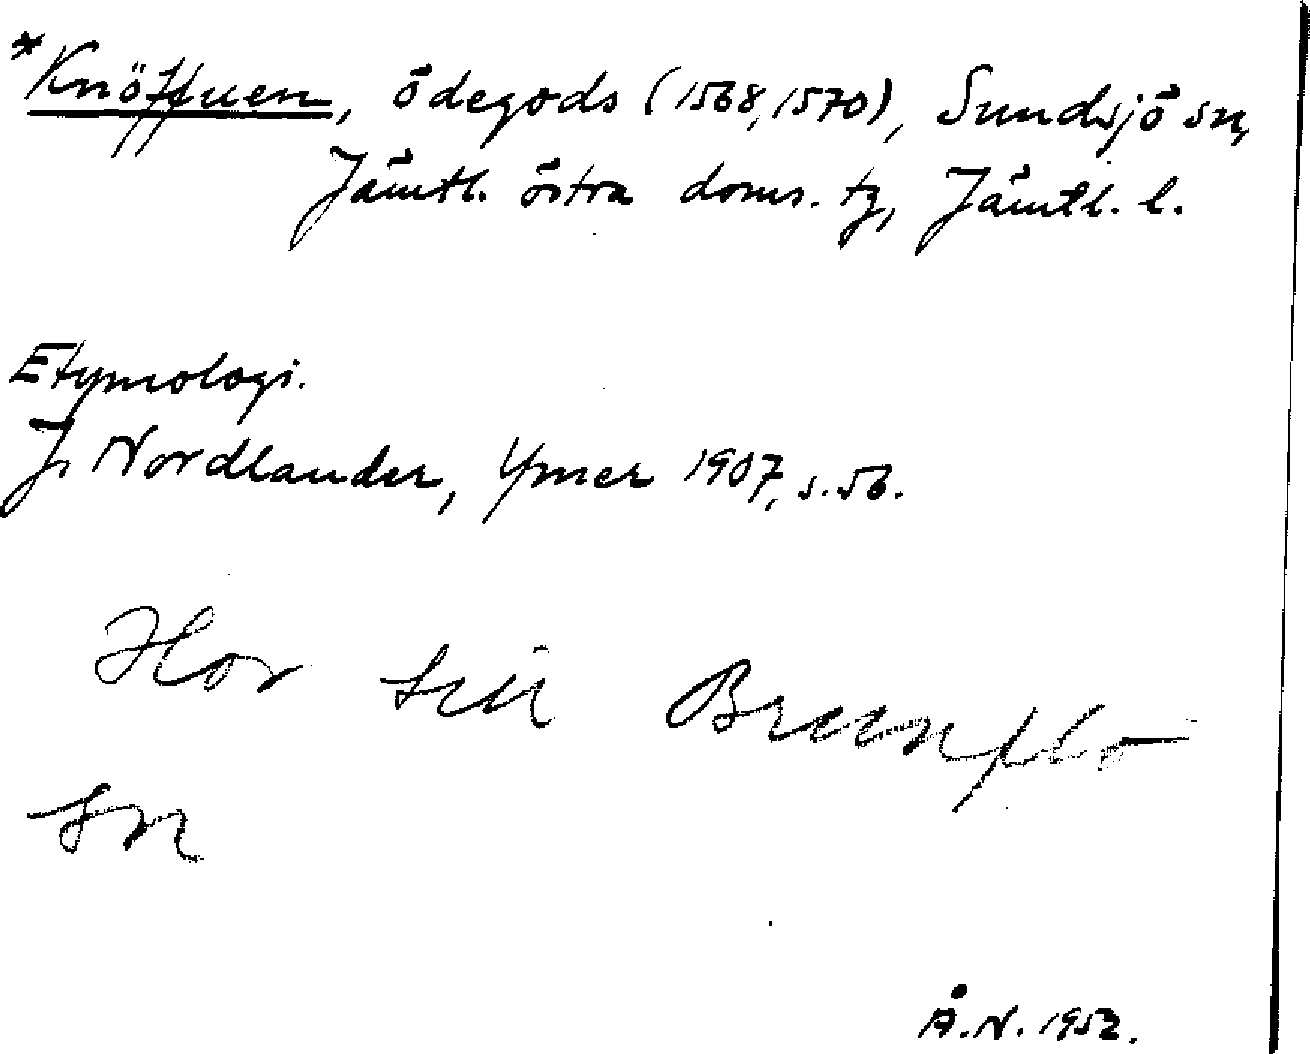 *Knöffuen, ödegods (1568, 1570), Sundsjö sn,
Jämtl. östra doms. tg, Jämtl. l.
Etymologi.
J. Nordlander, Ymer 1907, s. 56.
Hör till Brunflo
sn
Å.N. 1952.